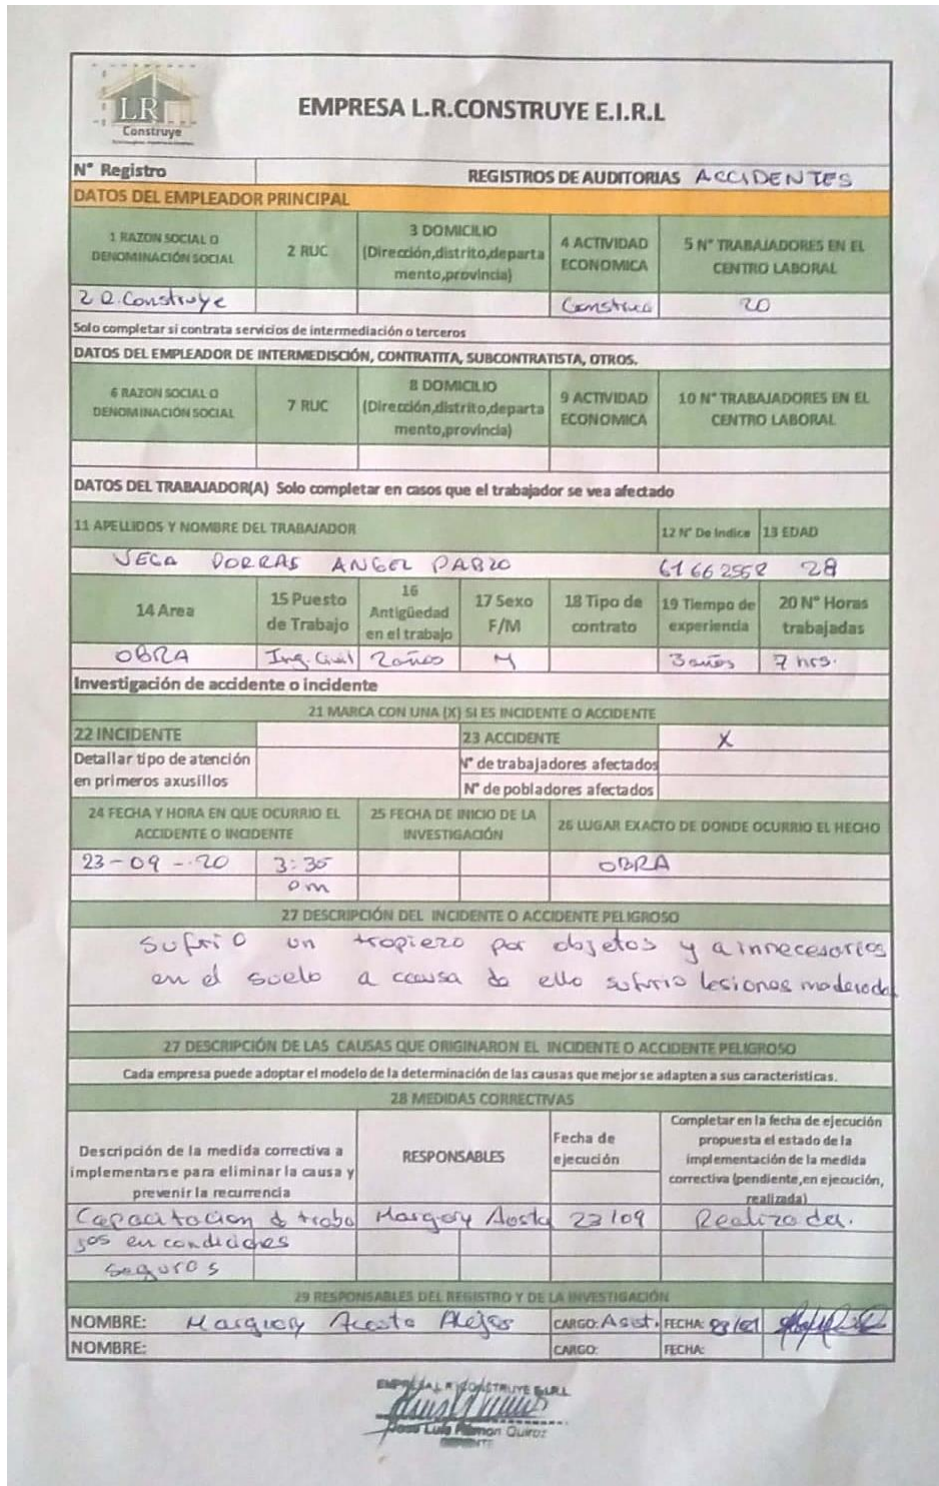 LR
Construye
EMPRESA L.R.CONSTRUYE E.I.R.L
N° Registro
REGISTROS DE AUDITORIAS ACCIDENTES
DATOS DEL EMPLEADOR PRINCIPAL
1 RAZON SOCIAL O DENOMINACIÓN SOCIAL
2 RUC
3 DOMICILIO (Dirección,distrito,departamento,provincia)
4 ACTIVIDAD ECONOMICA
5 N° TRABAJADORES EN EL CENTRO LABORAL
Construye
20
Solo completar si contrata servicios de intermediación o terceros
DATOS DEL EMPLEADOR DE INTERMEDISCIÓN, CONTRATITA, SUBCONTRATISTA, OTROS.
6 RAZON SOCIAL O DENOMINACIÓN SOCIAL
7 RUC
8 DOMICILIO (Dirección,distrito,departamento,provincia)
9 ACTIVIDAD ECONOMICA
10 N° TRABAJADORES EN EL CENTRO LABORAL
DATOS DEL TRABAJADOR(A) Solo completar en casos que el trabajador se vea afectado
11 APELLIDOS Y NOMBRE DEL TRABAJADOR
12 N° De Indice
13 EDAD
VEGA PORRAS ANGEL PABLO
28
14 Area
15 Puesto de Trabajo
16 Antigüedad en el trabajo
17 Sexo F/M
18 Tipo de contrato
19 Tiempo de experiencia
20 N° Horas trabajadas
OBRA
Ing. Civil
2 años
M
3 años
7 hrs.
Investigación de accidente o incidente
21 MARCA CON UNA (X) SI ES INCIDENTE O ACCIDENTE
22 INCIDENTE
23 ACCIDENTE
X
Detallar tipo de atención en primeros axusillos
N° de trabajadores afectados
N° de pobladores afectados
24 FECHA Y HORA EN QUE OCURRIO EL ACCIDENTE O INCIDENTE
25 FECHA DE INICIO DE LA INVESTIGACIÓN
26 LUGAR EXACTO DE DONDE OCURRIO EL HECHO
23-09-20
3:35 pm
OBRA
27 DESCRIPCIÓN DEL INCIDENTE O ACCIDENTE PELIGROSO
sufrio un tropiezo por objetos y a innecesarios
en el suelo a causa de ello sufrio lesiones moderadas
27 DESCRIPCIÓN DE LAS CAUSAS QUE ORIGINARON EL INCIDENTE O ACCIDENTE PELIGROSO
Cada empresa puede adoptar el modelo de la determinación de las causas que mejor se adapten a sus caracteristicas.
28 MEDIDAS CORRECTIVAS
Descripción de la medida correctiva a implementarse para eliminar la causa y prevenir la recurrencia
RESPONSABLES
Fecha de ejecución
Completar en la fecha de ejecución propuesta el estado de la implementación de la medida correctiva (pendiente,en ejecución, realizada)
Capacitacion d traba
Margory Acosta
23/09
Realizada.
jos en condiciones
seguros
29 RESPONSABLES DEL REGISTRO Y DE LA INVESTIGACIÓN
NOMBRE: Margiory Acosta Alejos
CARGO: Asist.
FECHA:
NOMBRE:
CARGO:
FECHA:
EMPRESA L R CONSTRUYE E.I.R.L
Jose Luis Ramon Quiroz
GERENTE